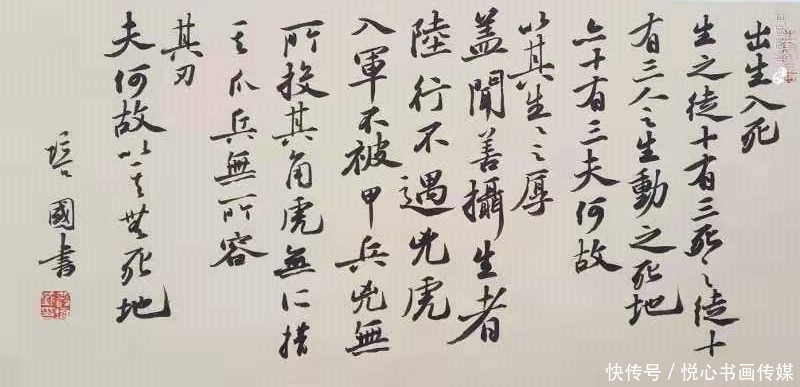 出生入死
生之徒十有三死之徒十
有三人之生動之死地
亦十有三夫何故
以其生々之厚
蓋聞善攝生者
陸行不遇兕虎
入軍不被甲兵兕無
所投其角虎無所措
其爪兵無所容
其刃
夫何故以其無死地
培國書
快传号/悦心书画传媒